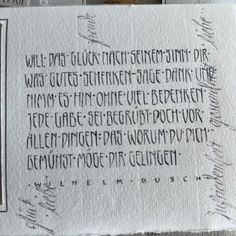 WILL DAS GLÜCK NACH SEINEM SINN DIR
WAS GUTES SCHENKEN SAGE DANK UND
NIMM ES HIN OHNE VIEL BEDENKEN
JEDE GABE SEI BEGRÜßT DOCH VOR
ALLEN DINGEN: DAS WORUM DU DICH
BEMÜHST MÖGE DIR GELINGEN.
WILHELM BUSCH
freude
liebe
glück
gesundheit
Zufriedenheit